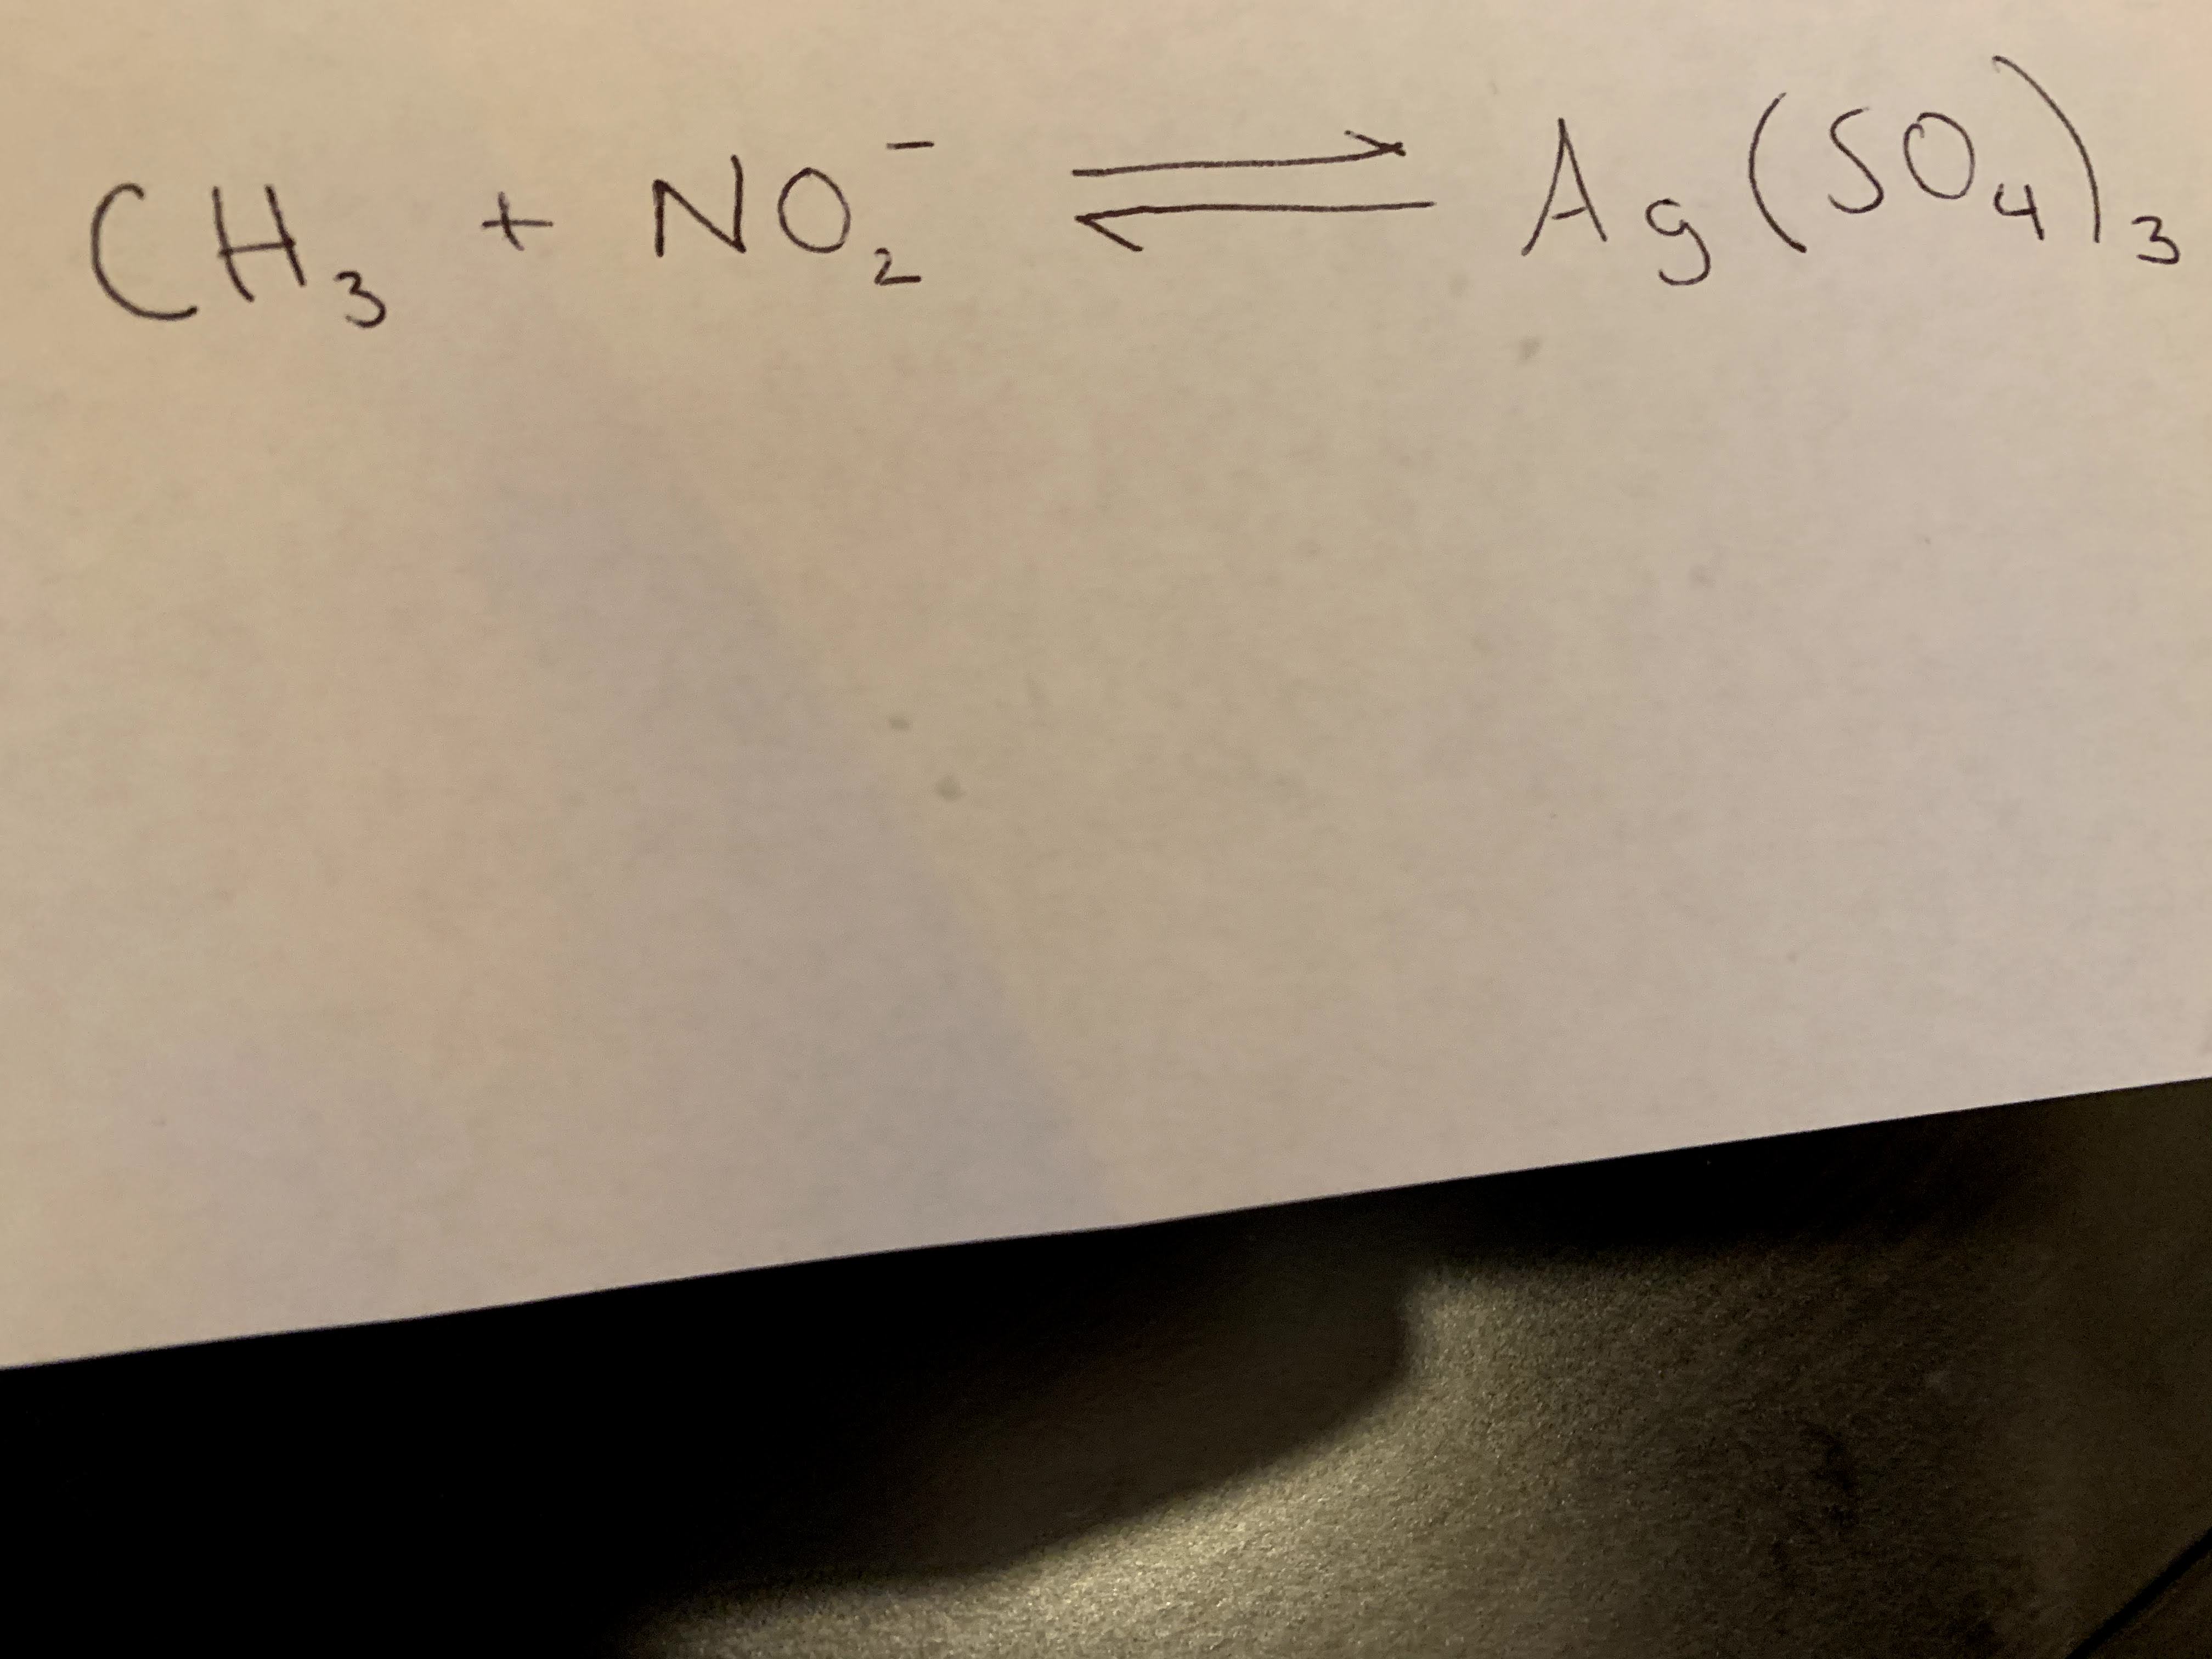 CH₃ + NO₂⁻ ⇌ Ag(SO₄)₃